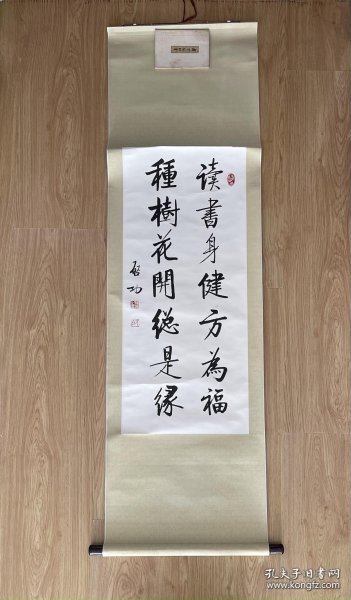 读書身健方為福
種樹花開総是缘
啟功
孔夫子旧书网